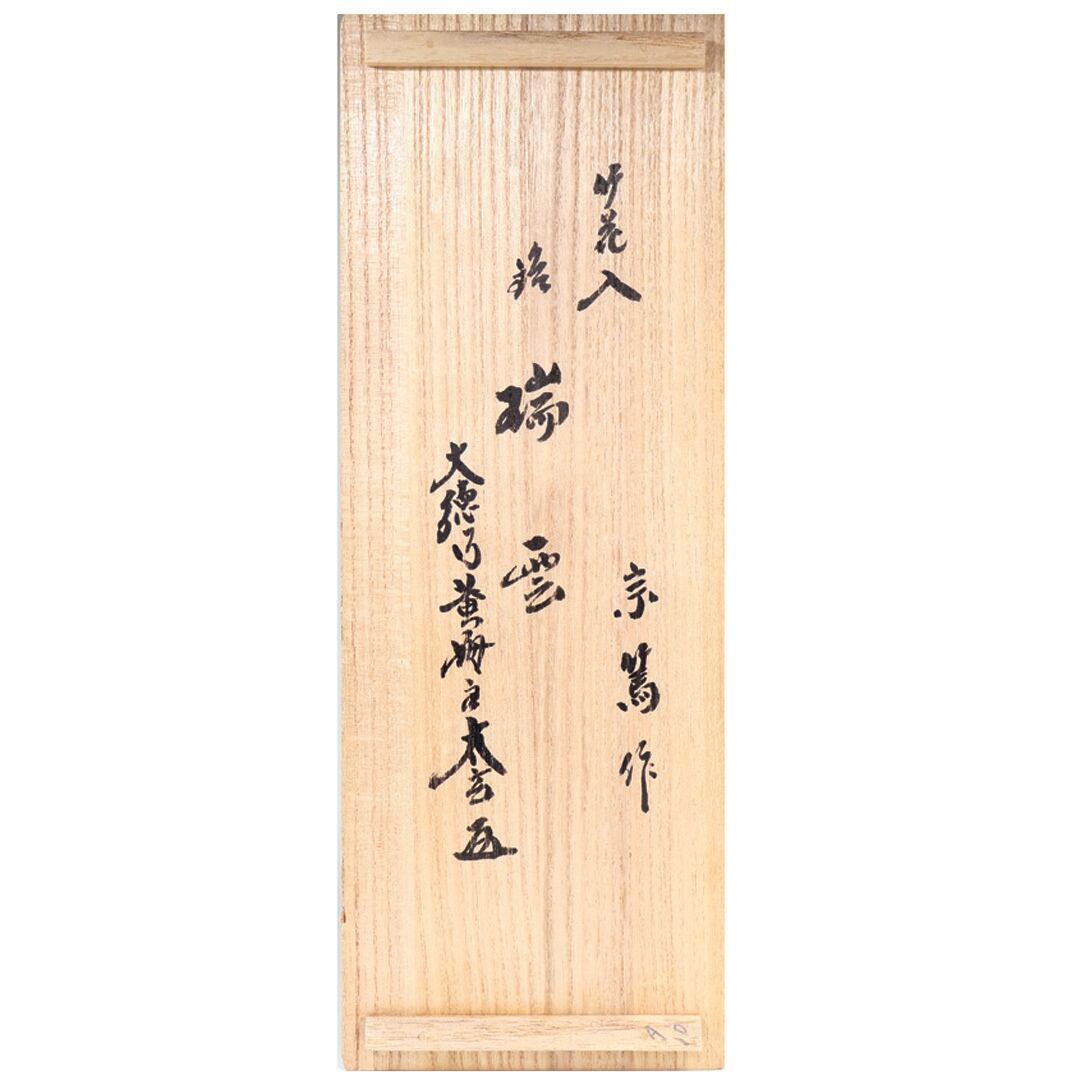 竹花入
宗篤作
銘
瑞雲
大徳寺黄梅主太玄